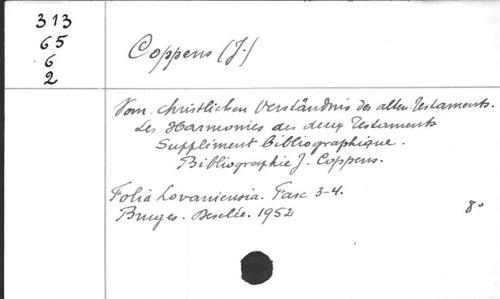 313
65
6
2
Coppens (J.)
Vom christlichen Verständnis des alten Testaments.
Les Harmonies des deux Testaments
Supplément bibliographique.
Bibliographie J. Coppens.
Folia Lovaniensia. Fasc 3-4.
Bruges. Desclée. 1952
8°